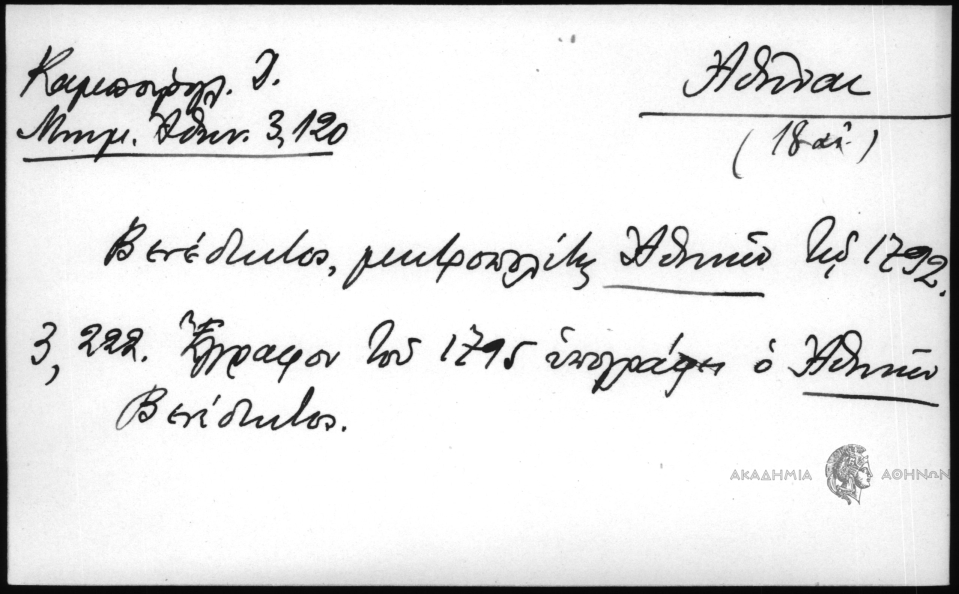 Καμπούρογλ. Δ.
Μνημ. Ἀθην. 3, 120
Ἀθῆναι
(18 αἰ.)
Βενέδικτος, μητροπολίτης Ἀθηνῶν τῷ 1792.
3, 222. Ἔγγραφον τοῦ 1795 ὑπογράφει ὁ Ἀθηνῶν
Βενέδικτος.
ΑΚΑΔΗΜΙΑ ΑΘΗΝΩΝ